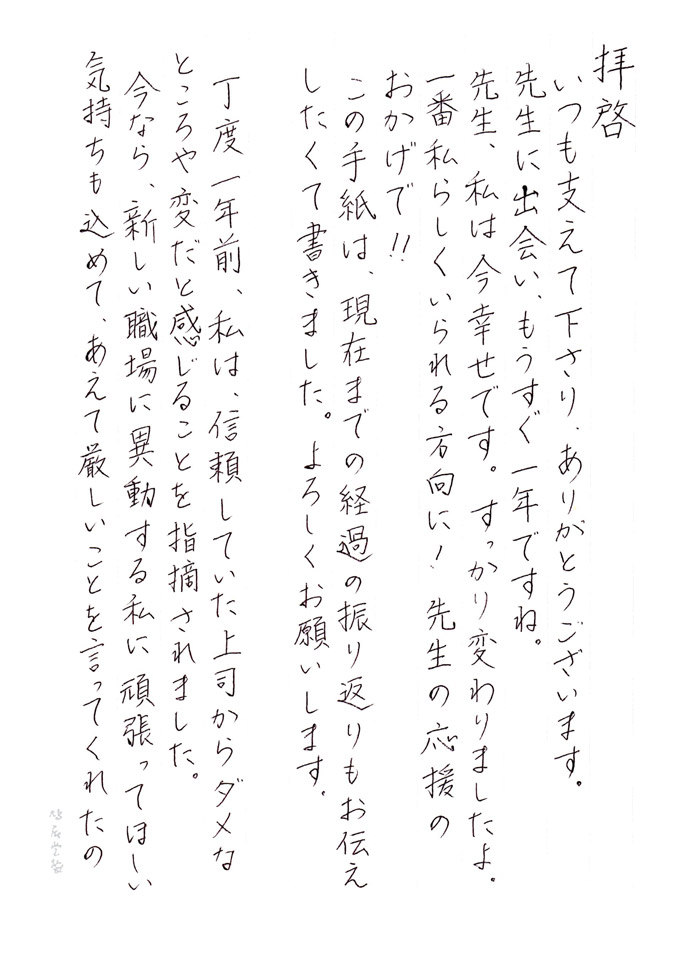 拝啓
いつも支えて下さり、ありがとうございます。
先生に出会い、もうすぐ一年ですね。
先生、私は今幸せです。すっかり変わりましたよ。
一番私らしくいられる方向に！先生の応援の
おかげで！！
この手紙は、現在までの経過の振り返りもお伝え
したくて書きました。よろしくお願いします。
丁度一年前、私は、信頼していた上司からダメな
ところや変だと感じることを指摘されました。
今なら、新しい職場に異動する私に頑張ってほしい
気持ちも込めて、あえて厳しいことを言ってくれたの